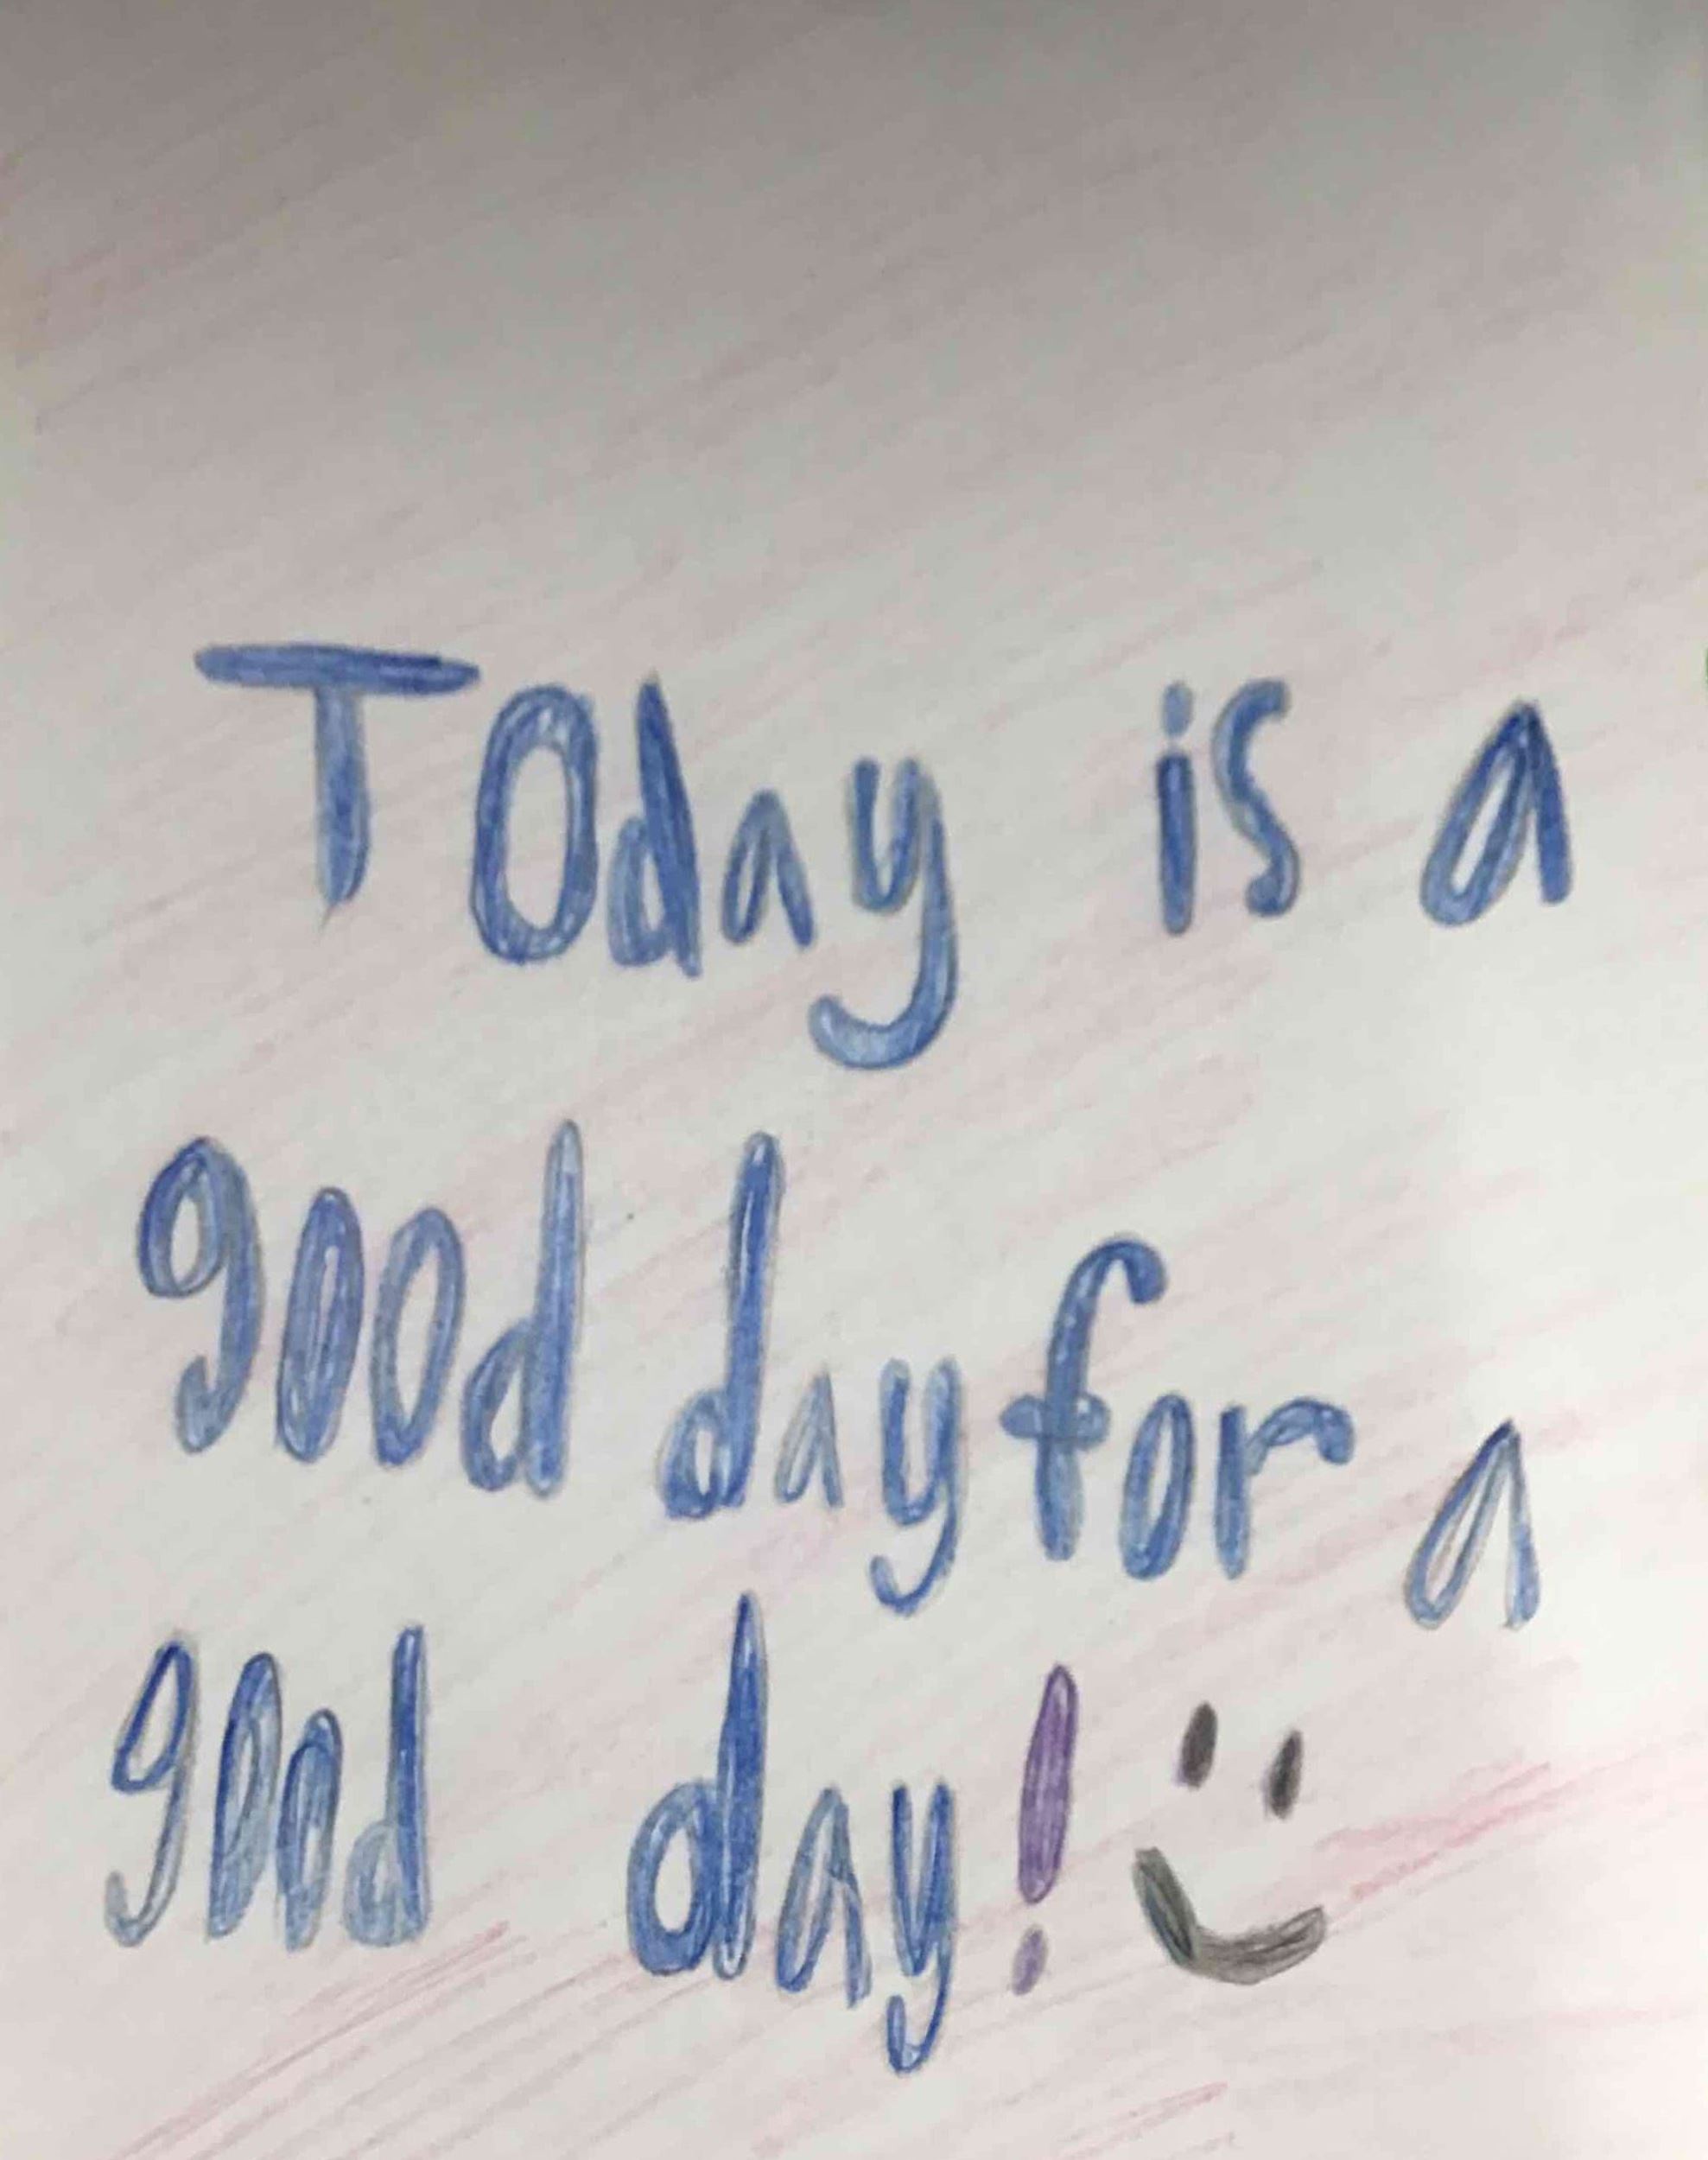 Today is a
good day for a
good day! :)